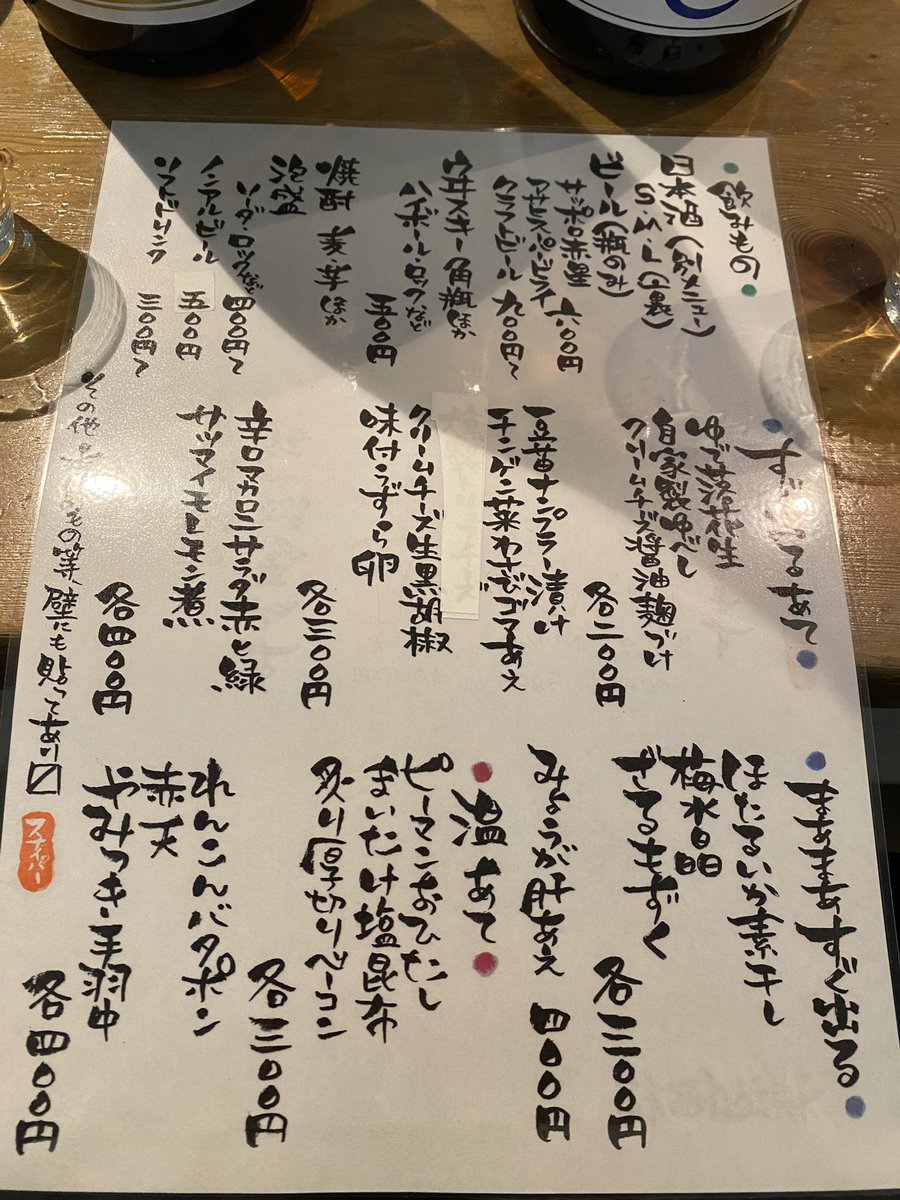 飲みもの
日本酒（別メニュー）
S・M・L（裏）
ビール（瓶のみ）
サッポロ赤星
アサヒスーパードライ
六〇〇円
クラフトビール 九〇〇円〜
ウヰスキー角瓶ほか
ハイボール・ロックなど
五〇〇円
焼酎 麦芋ほか
泡盛
ソーダ・ロックなど 四〇〇円〜
ノンアルビール 五〇〇円
ソフトドリンク 三〇〇円〜
すぐ出るあて
ゆで落花生
自家製ゆべし
クリームチーズ醤油麹づけ
各二〇〇円
豆苗ナンプラー漬け
チンゲン菜わさびゴマあえ
クリームチーズ生黒胡椒
味付うずら卵
各三〇〇円
辛口マカロニサラダ赤と緑
サツマイモレモン煮
各四〇〇円
まあまあすぐ出る
ほたるいか素干し
梅水晶
ざるもずく
各三〇〇円
みょうが肝あえ 四〇〇円
温あて
ピーマンおひたし
まいたけ塩昆布
炙り厚切りベーコン
各三〇〇円
れんこんバタポン
赤天
やみつき手羽中
各四〇〇円
その他
もの等、壁にも貼ってあり〼
スナイパー